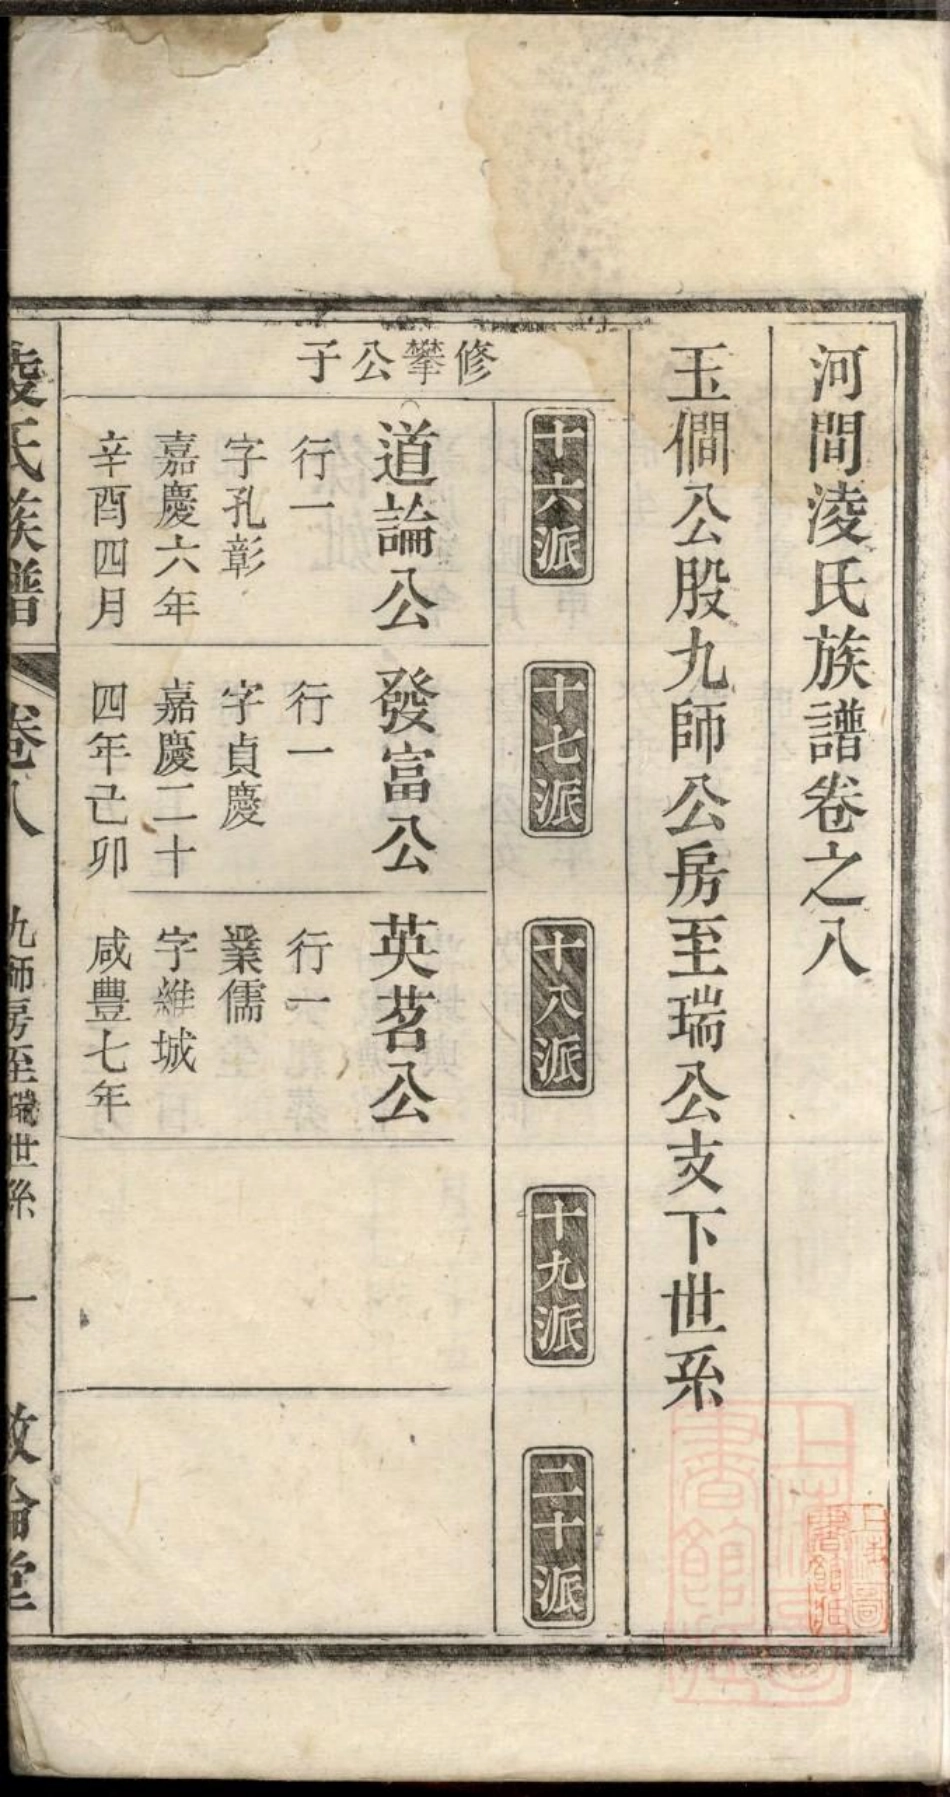 河間淩氏族譜卷之八
玉僩公股九師公房至瑞公支下世系
十六派
十七派
十八派
十九派
二十派
修攀公子
道論公
行一
字孔彰
嘉慶六年
辛酉四月
發富公
行一
字貞慶
嘉慶二十
四年己卯
英茗公
行一
業儒
字維城
咸豐七年
淩氏族譜
卷八
九師房至瑞世系
一
敦倫堂
上海圖書館藏